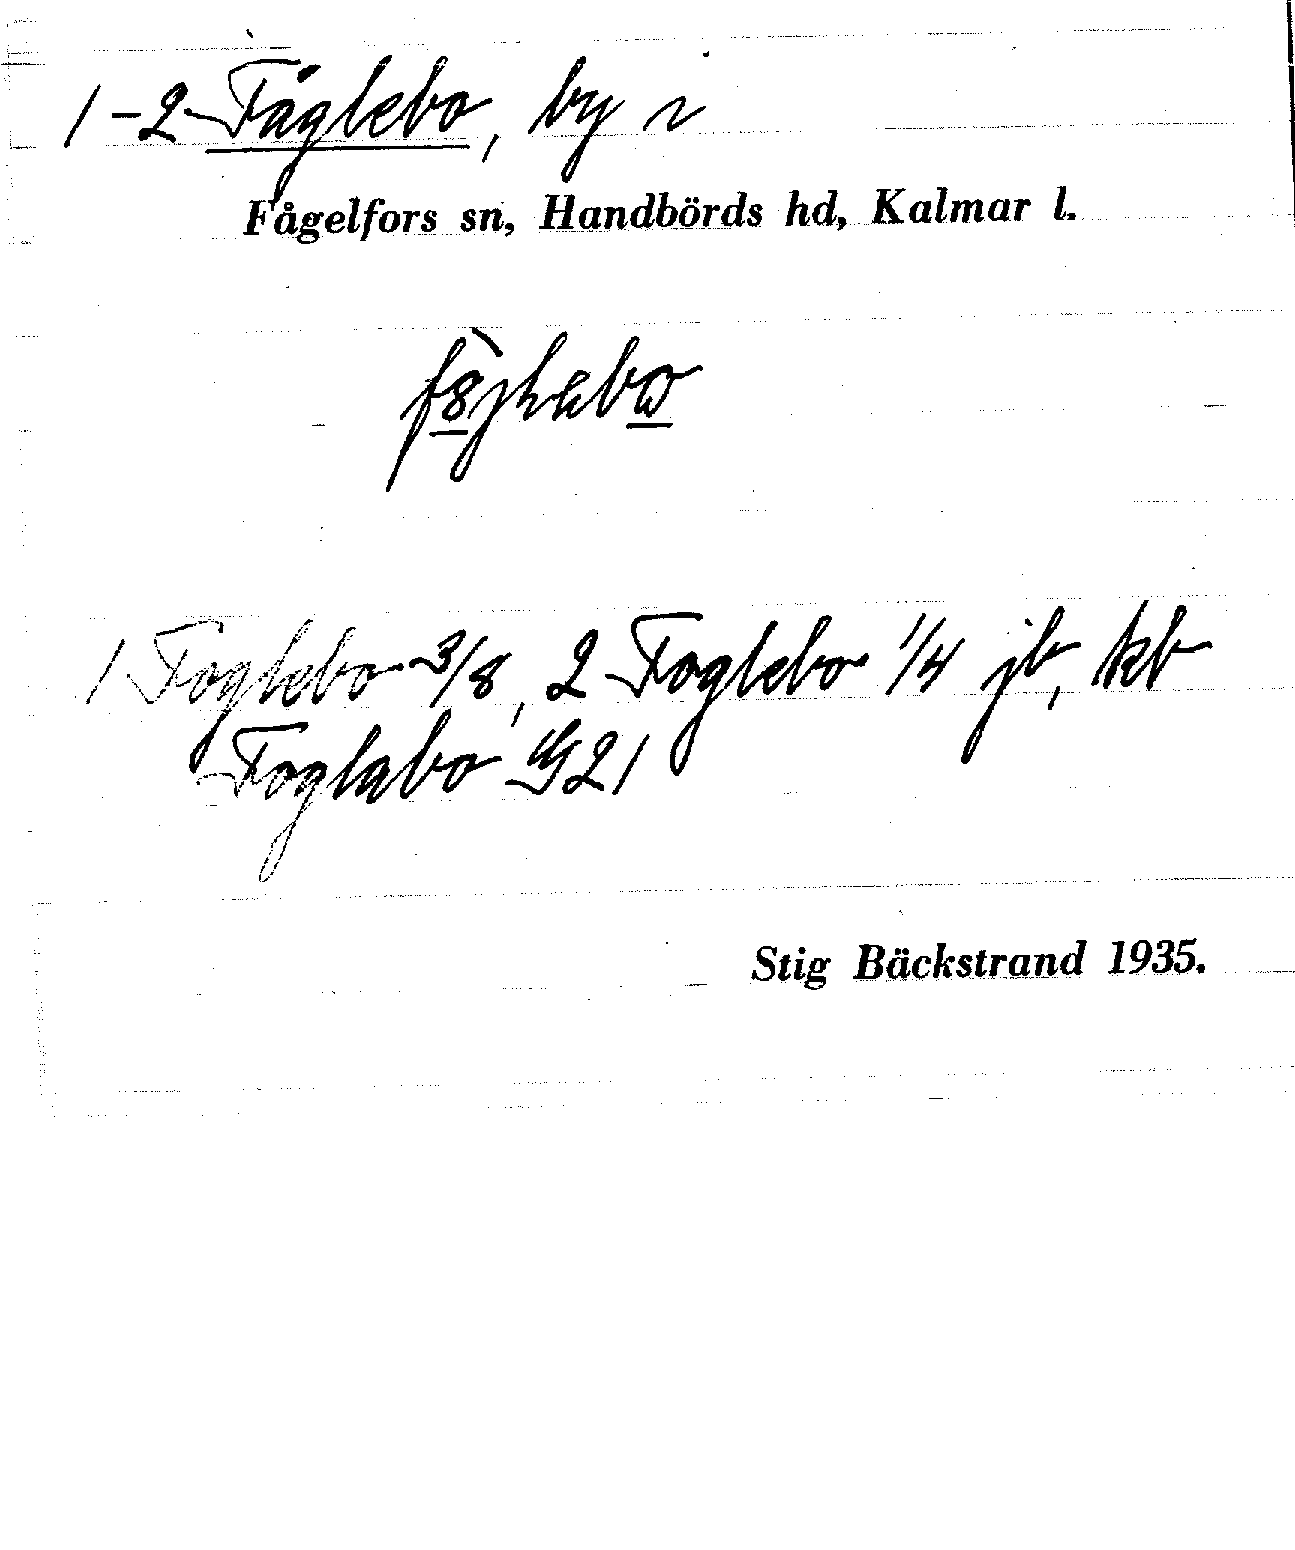 1-2 Fåglebo, by i
Fågelfors sn, Handbörds hd, Kalmar l.
1 Foglebo 3/8, 2 Foglebo 1/4 jb, kb
Foglabo G21
Stig Bäckstrand 1935.